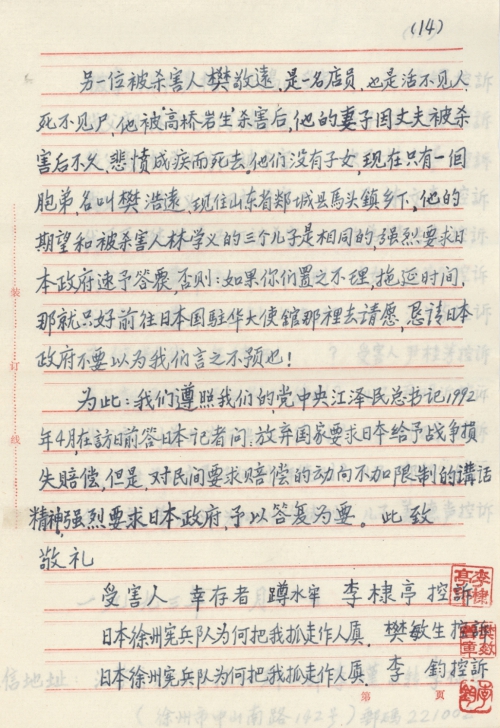 (14)
另一位被杀害人樊敬遠，是一名店员，也是活不见人
死不见尸，他被"高桥岩生"杀害后，他的妻子因丈夫被杀
害后不久，悲愤成疾而死去。他们没有子女，现在只有一個
胞弟，名叫樊浩遠，现住山东省郯城县馬头鎮乡下，他的
期望和被杀害人林学义的三个儿子是相同的，强烈要求日
本政府速予答覆，否则：如果你们置之不理，拖延时间，
那就只好前往日本国駐华大使館那裡去請愿，恳請日本
政府不要以为我们言之不预也！
为此：我们遵照我们的，党中央江泽民总书记1992
年4月，在訪日前答日本记者问，放弃国家要求日本给予战争损
失赔偿，但是，对民间要求赔偿的动向不加限制的講话
精神，强烈要求日本政府，予以答复为要。此致
敬礼
受害人 幸存者 蹲水牢 李棣亭 控訴
日本徐州宪兵队为何把我抓走作人质。樊敏生控訴
日本徐州宪兵队为何把我抓走作人质。李 鈞控訴
装
订
线
第 页
(徐州市中山南路142号) 邮碼221002